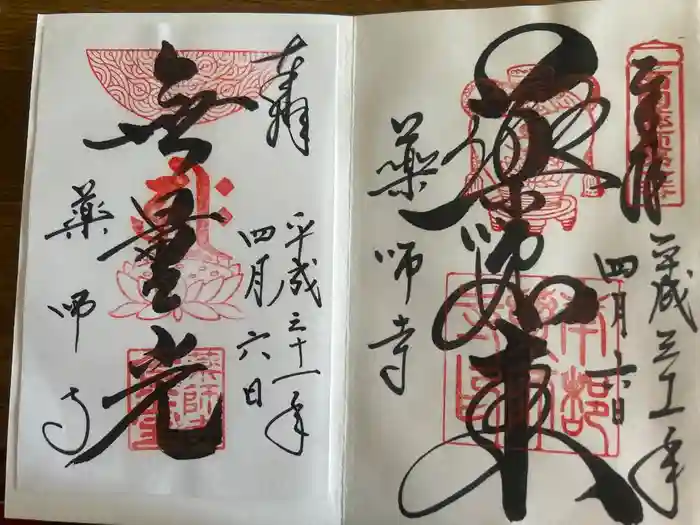 奉拝
平成三十一年
四月六日
無量光
薬師寺
奉拝
平成三十一年
四月六日
薬師如来
薬師寺